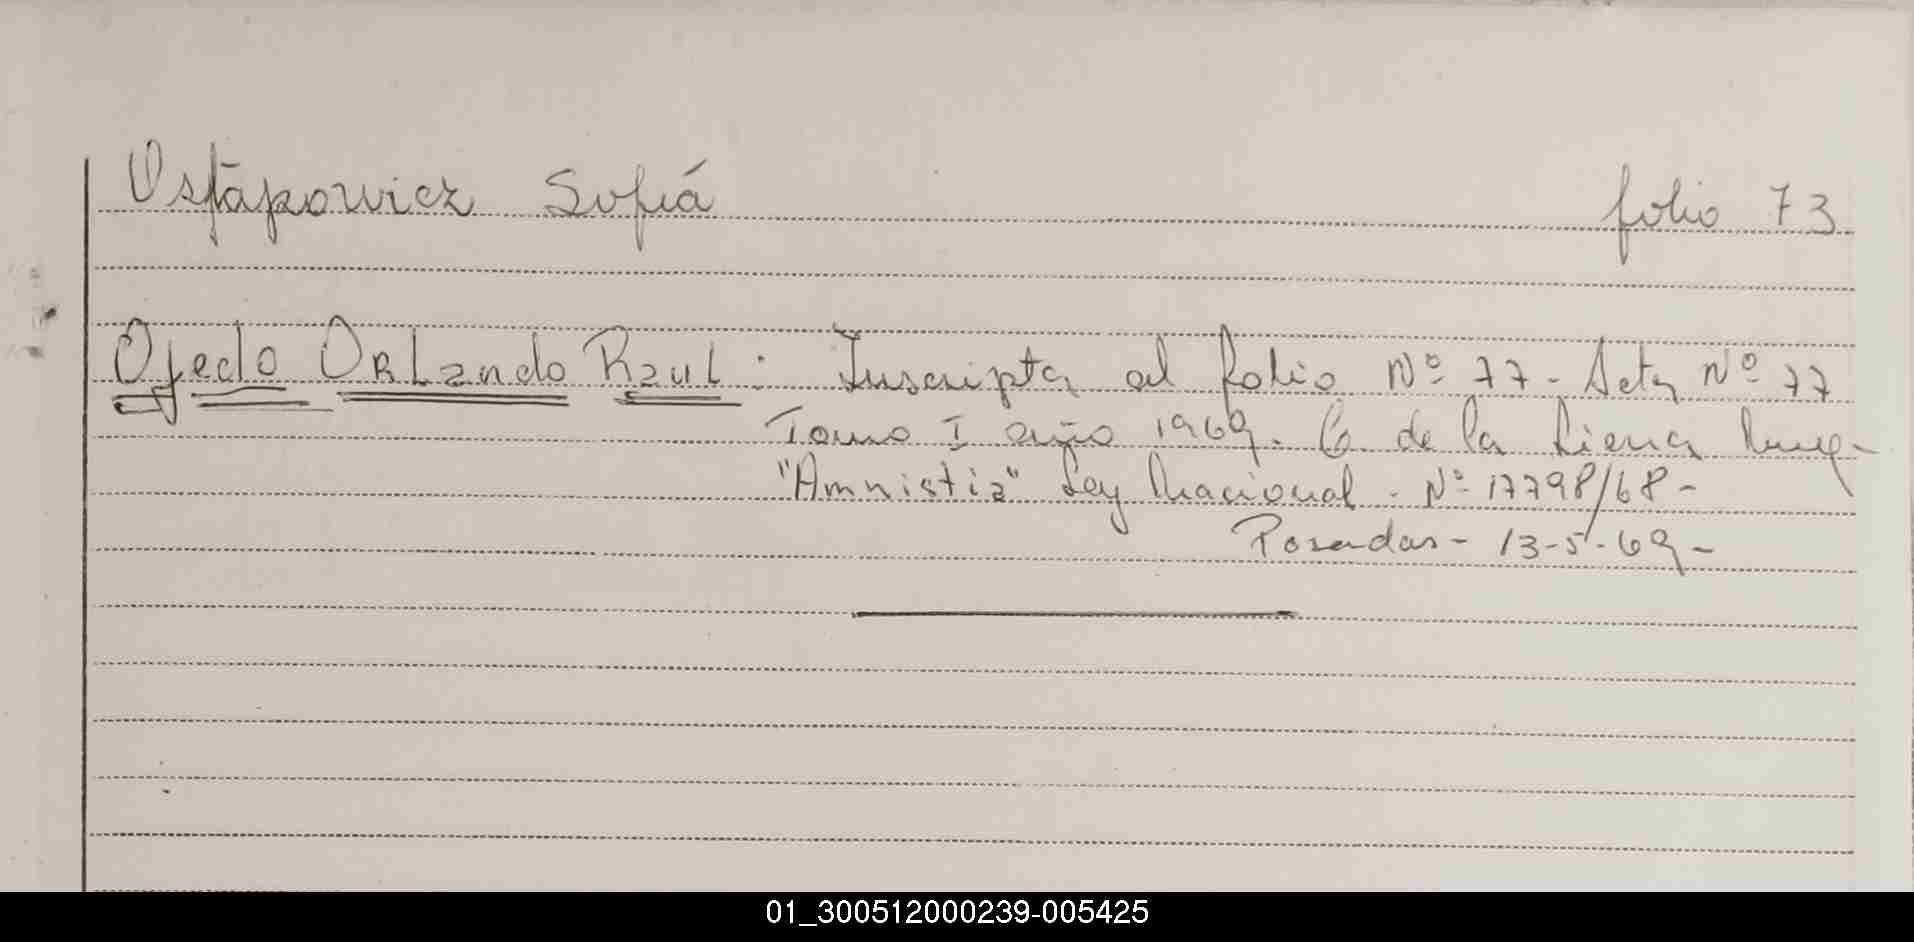 Ostapowicz Sofiá folio 73
Ojeda Orlando Raul: Inscripta al folio Nº 77 - Acta Nº 77
Tomo I año 1969. C de la Sierra
"Amnistia" Ley Nacional - Nº 17798/68 -
Posadas - 13-5-69 -
01_300512000239-005425